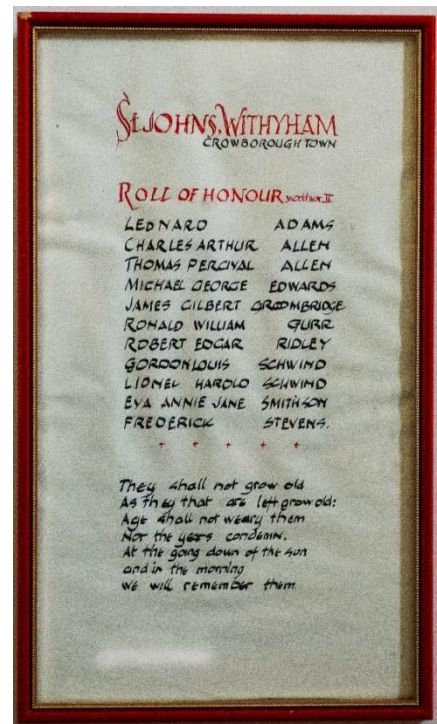 St JOHNS, WITHYHAM
CROWBOROUGH TOWN
ROLL OF HONOUR world war II
LEONARD ADAMS
CHARLES ARTHUR ALLEN
THOMAS PERCIVAL ALLEN
MICHAEL GEORGE EDWARDS
JAMES GILBERT GROOMBRIDGE
RONALD WILLIAM GURR
ROBERT EDGAR RIDLEY
GORDON LOUIS SCHWIND
LIONEL HAROLD SCHWIND
EVA ANNIE JANE SMITHSON
FREDERICK STEVENS.
They shall not grow old
As they that are left grow old:
Age shall not weary them
Nor the years condemn.
At the going down of the sun
and in the morning
we will remember them